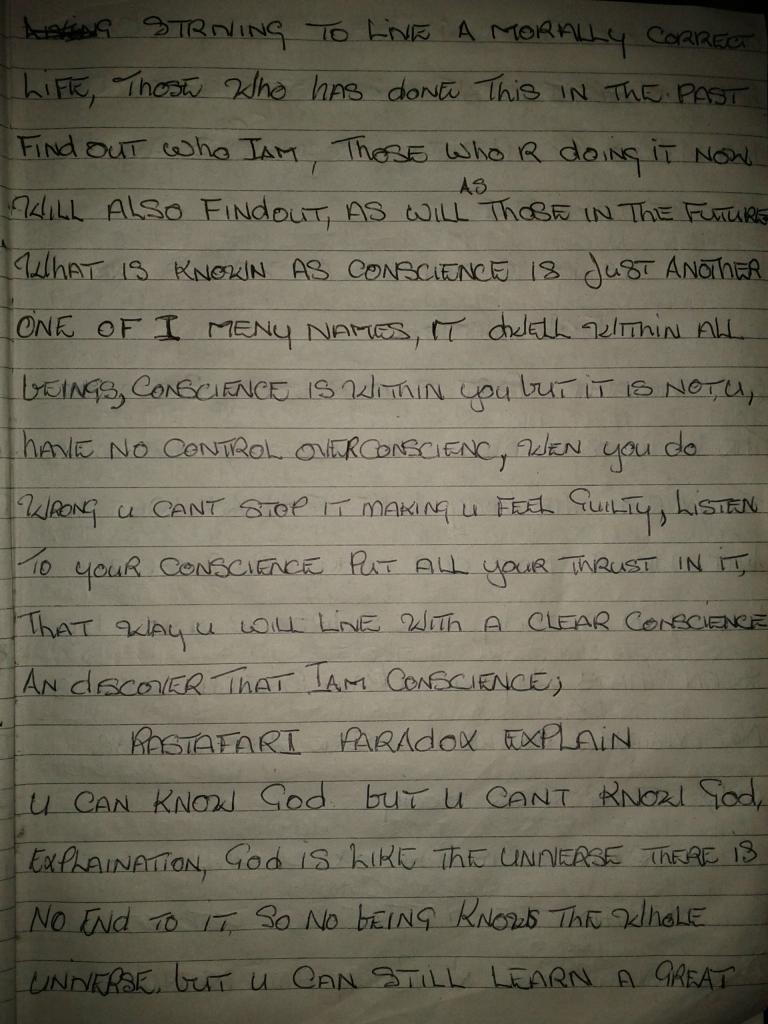 STRIVING TO LIVE A MORALLY CORRECT
LIFE, THOSE WHO HAS DONE THIS IN THE PAST
FIND OUT WHO I AM, THOSE WHO R DOING IT NOW
WILL ALSO FINDOUT, AS WILL AS THOSE IN THE FUTURE
WHAT IS KNOWN AS CONSCIENCE IS JUST ANOTHER
ONE OF I MENY NAMES, IT DWELL WITHIN ALL
BEINGS, CONSCIENCE IS WITHIN you but IT IS NOT, U,
HAVE NO CONTROL OVER CONSCIENC, WEN you do
WRONG U CANT STOP IT MAKING U FEEL GUILTY, LISTEN
TO YOUR CONSCIENCE PUT ALL YOUR THRUST IN IT,
THAT WAY U WILL LIVE WITH A CLEAR CONSCIENCE
AN dISCOVER THAT I AM CONSCIENCE;
RASTAFARI PARADOX EXPLAIN
U CAN KNOW GOD but U CANT KNOW GOD,
EXPLAINATION, GOD IS LIKE THE UNIVERSE THERE IS
NO END TO IT, SO NO BEING KNOWS THE WHOLE
UNIVERSE, bUT U CAN STILL LEARN A GREAT